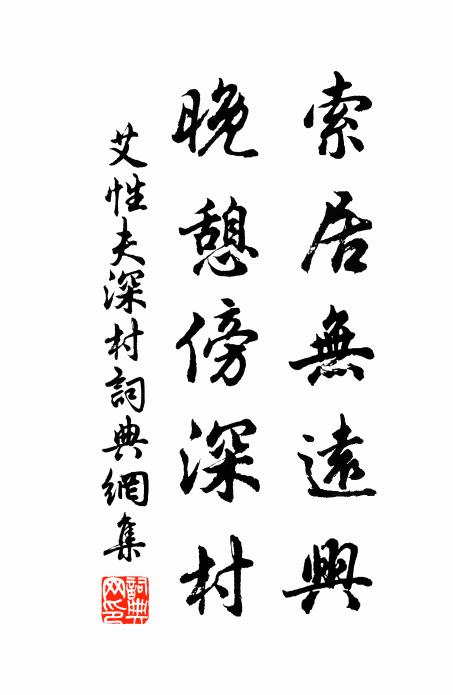 索居無遠興
晚憩傍深村
艾性夫深村詞典網集
詞典網印